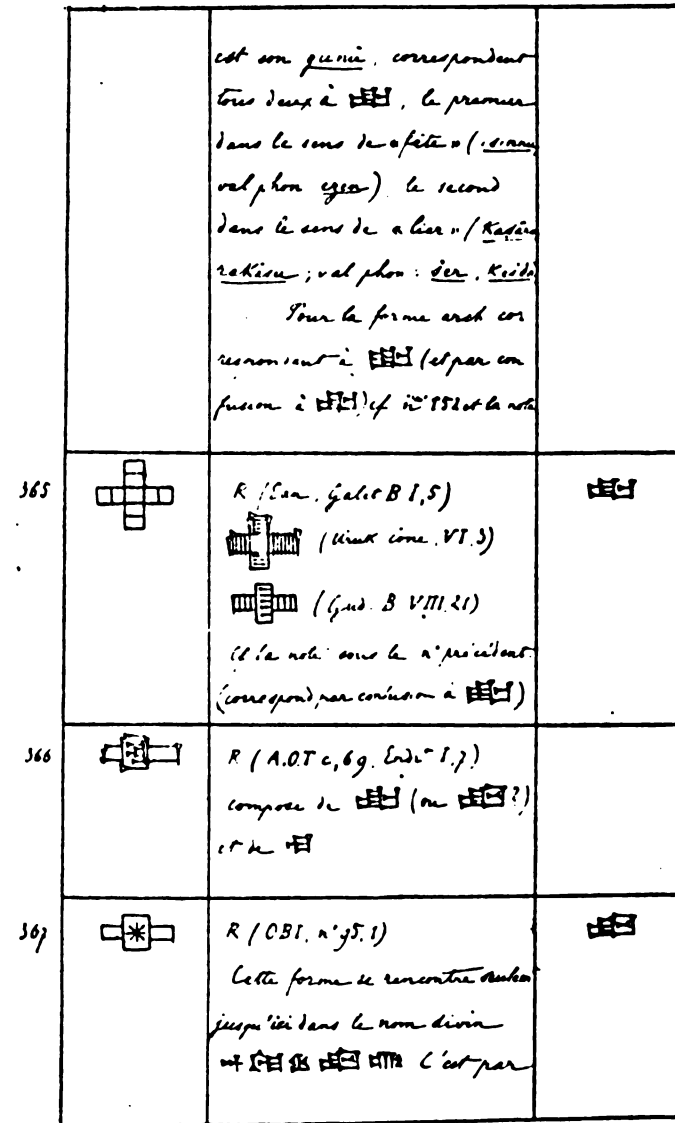 est son gunû, correspondent
tous deux à 𒂡, le premier
dans le sens de « fête » (isinnu,
val phon ezen) le second
dans le sens de « lier » (Kaṣāru
rakāsu ; val phon : šer, Kešda
Pour la forme arch cor
respondant à 𒂡 (et par con
fusion à 𒂡) cf n° 152 et la note
365
R (Ean. Galet B I, 5)
(Uruk cone. VI. 3)
(Gud. B VIII. 21)
Cf la note sous le n° précédent
(correspond par confusion à 𒂡)
366
R (A.O.T c, 69. I, 7)
compose de 𒂡 (ou ?)
et de
367
R (OBI, n° 95, 1)
Cette forme se rencontre seulem
jusqu'ici dans le nom divin
C'est par